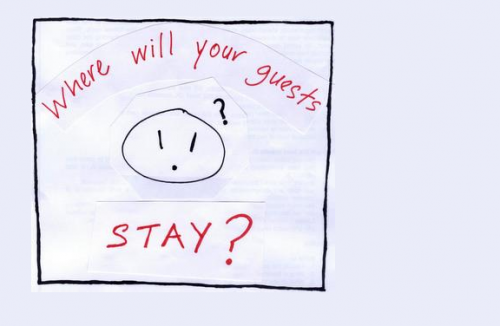 Where will your guests
?
STAY?